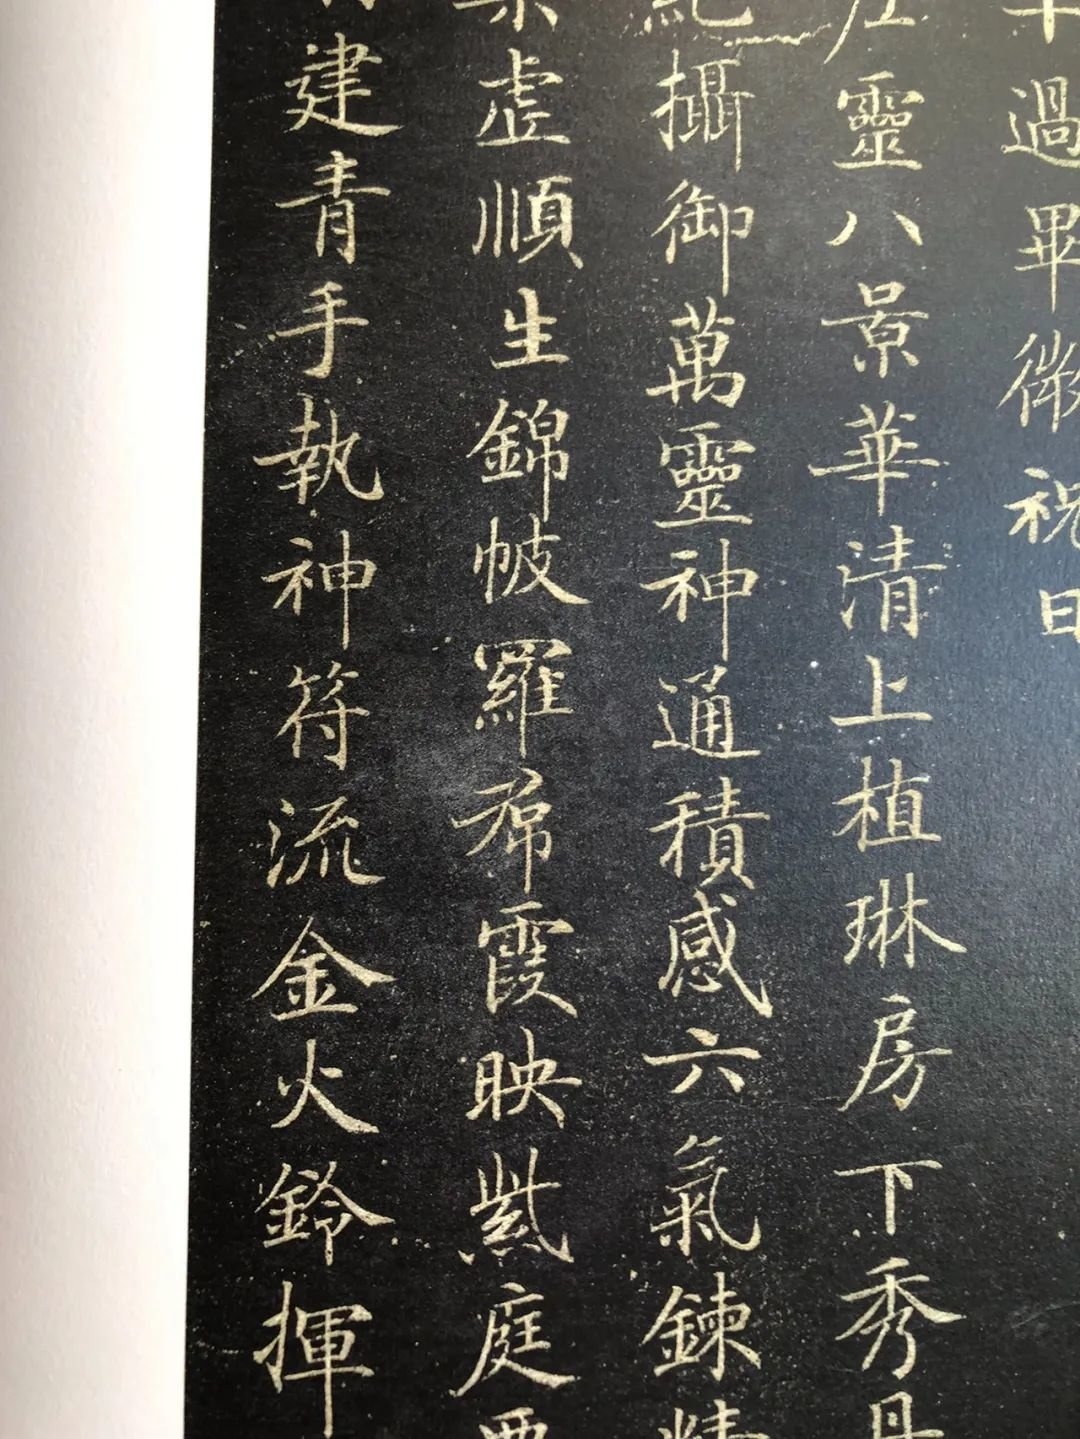 過畢微祝曰
左靈八景華清上植琳房下秀丹
紀攝御萬靈神通積感六氣鍊精
虛順生錦帔羅帬霞映紫庭
建青手執神符流金火鈴揮